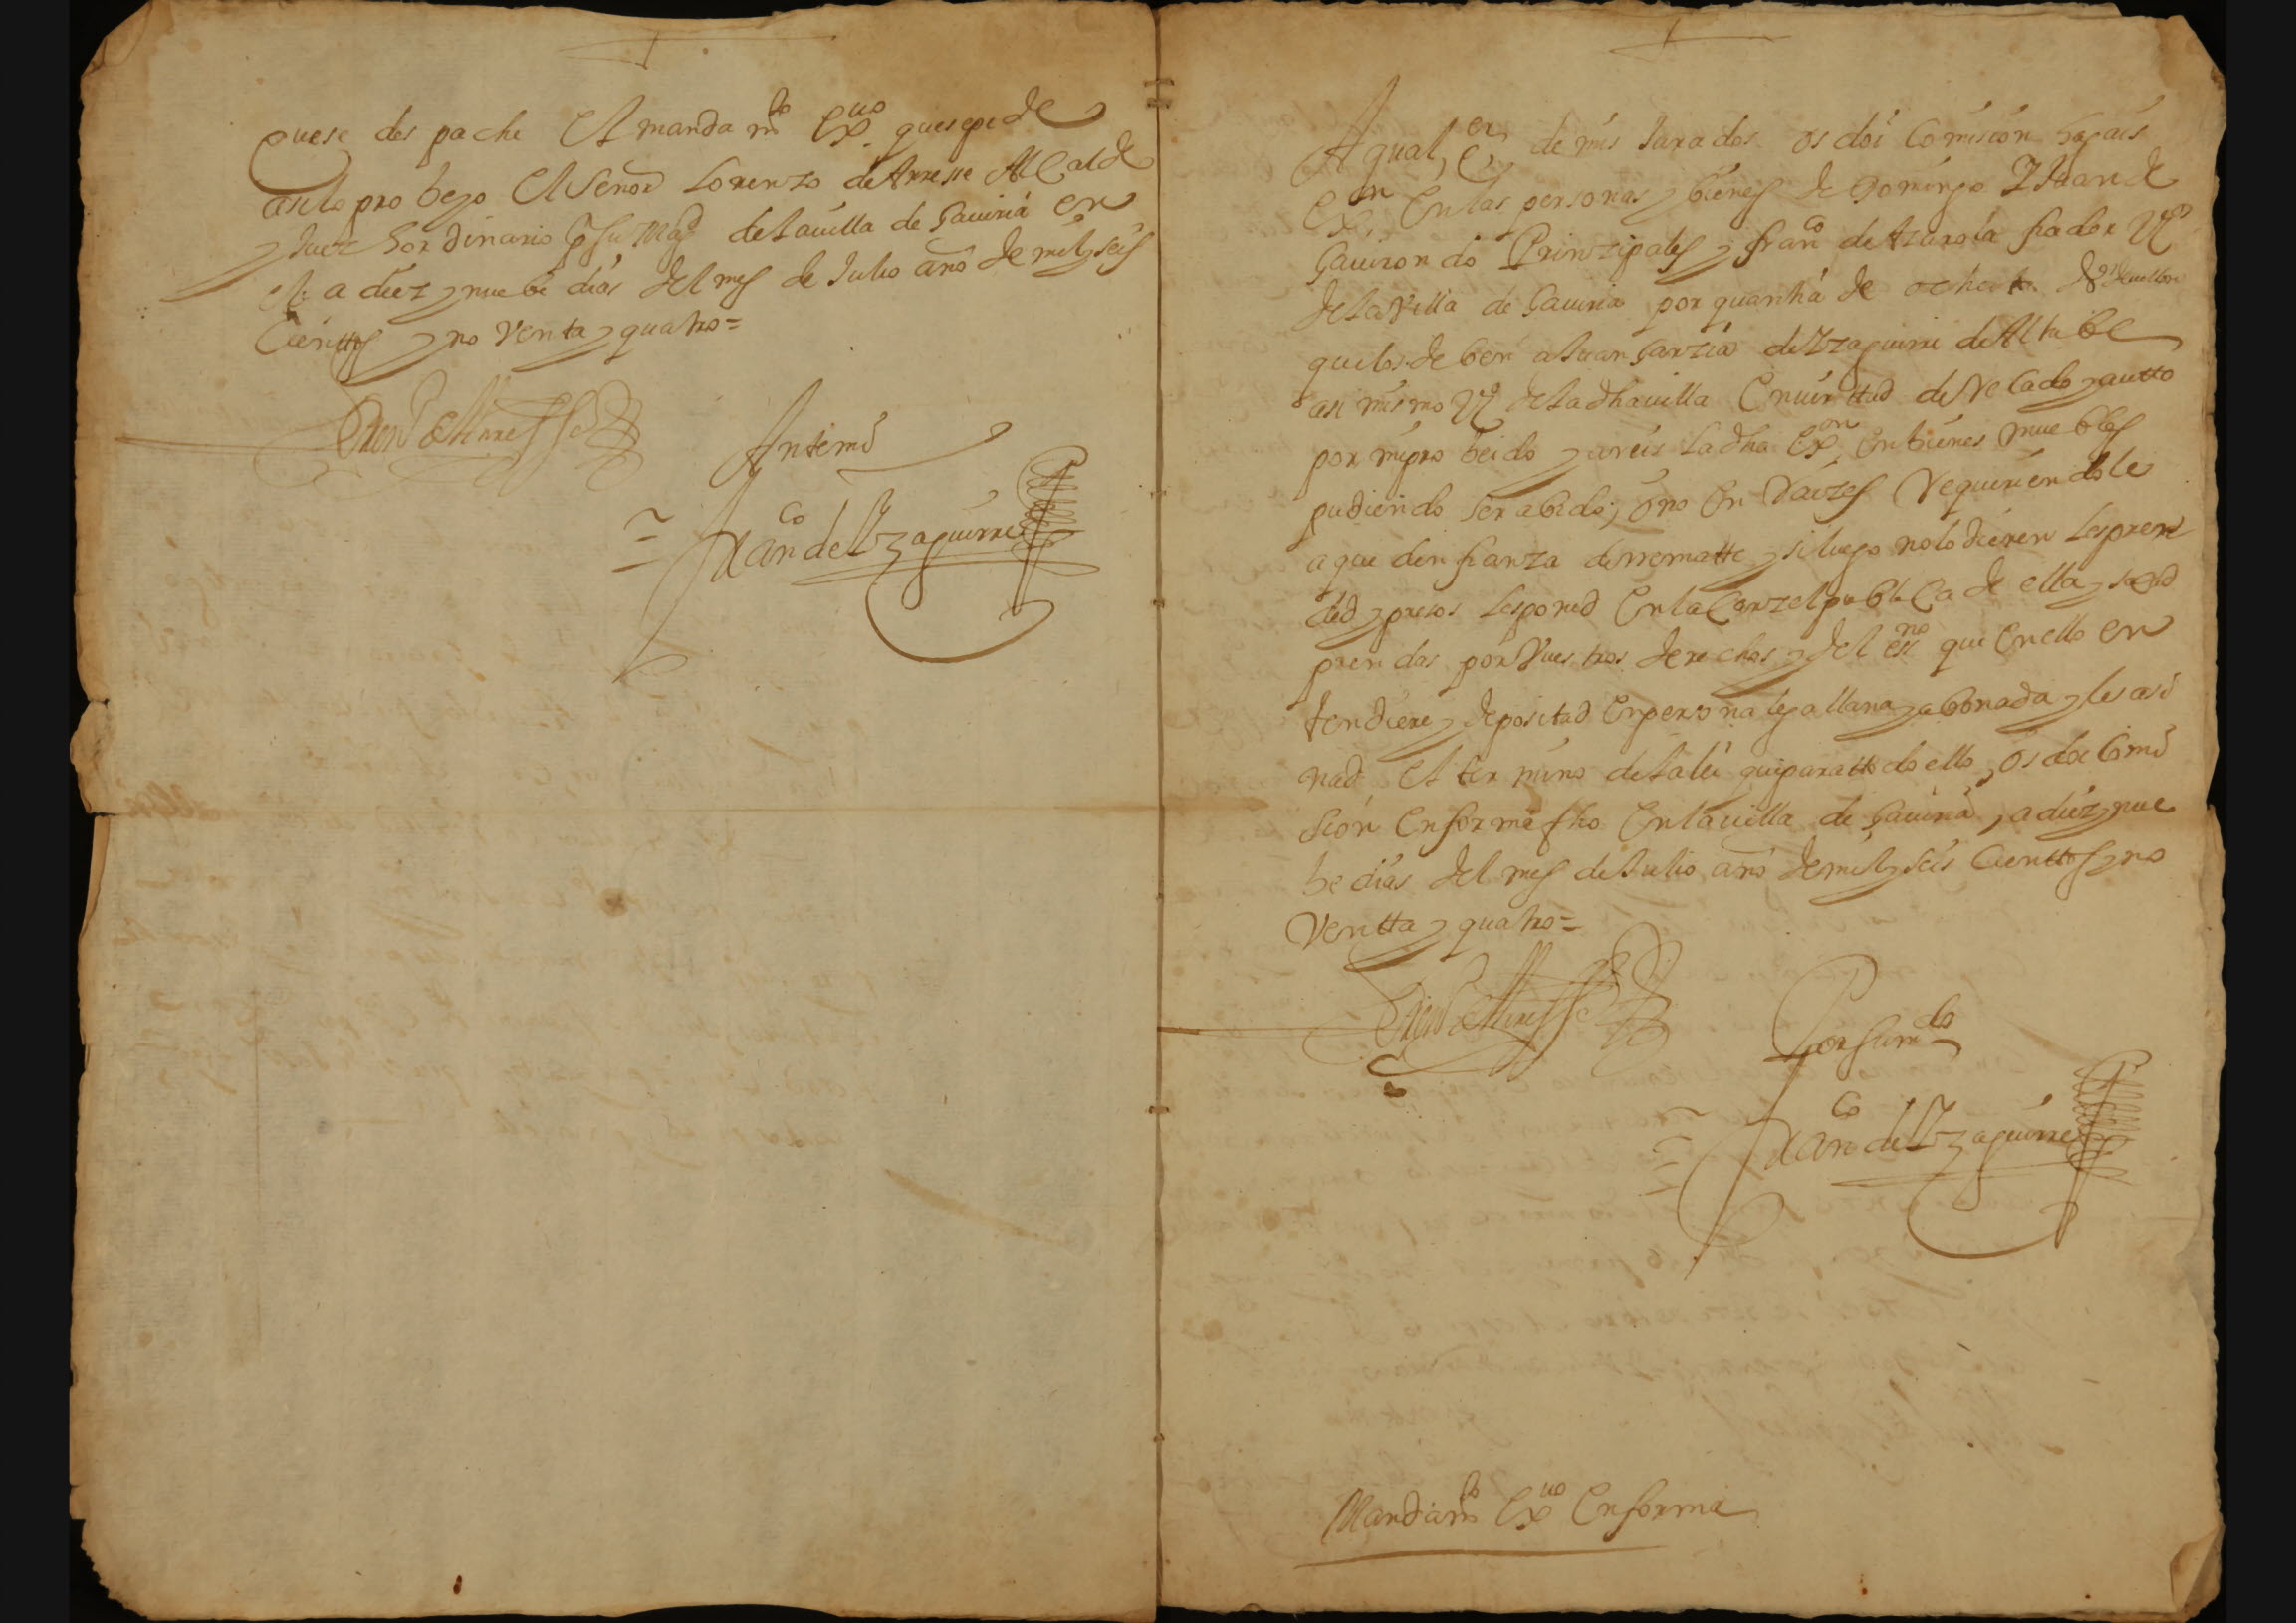 Quese des pache El manda mto. Exuo. quesepide
asilo pro beyo El Señor Lorenzo de Arresse Alcalde
y Juez hordinario Psu Magd de la uilla de Gauiria en
el a diez y nuebe dias del mes de Julio año de mil y seis
Cientos y no Venta y quatro=
Loren.o de Arresse
Antemi
Franco de Yzaguirre
A qual, er de mis Jurados os doi Comision hagais
Exon En las personas y bienes de Domingo Y Juan de
Gauiron do Prinzipales y franco de Azarola fiador Vos
de la Villa de Gauiria por quantia de de vellon
que los deben a Juan Garzia de Yzaguirre de Altube
asi mismo Vo de la dha uilla En uirttud de Recado y autto
por mi pro beido y areis la dha Exon En bienes muebles
pudiendo ser abidos, o no En Raizes Requiriendole
a que den fianza de rrematte y si luego no lo dieren les pren
ded y presos les poned En la Carzel publica de ella y saquad
prendas por Vuestros derechos y del essno que En ello en
tendiere y depositad En persona lega llana y abonada y les asi
nad El ter mino de la lei que para ttodo ello, os doi Comi
sion En forma fho En la uilla de Gauiria, a diez y nue
be dias del mes de Julio año de mil y seis Cienttos y no
Ventta y quatro=
Loren.o de Arresse
Por su mdo
Franco de Yzaguirre
Mandamto Exuo En forma